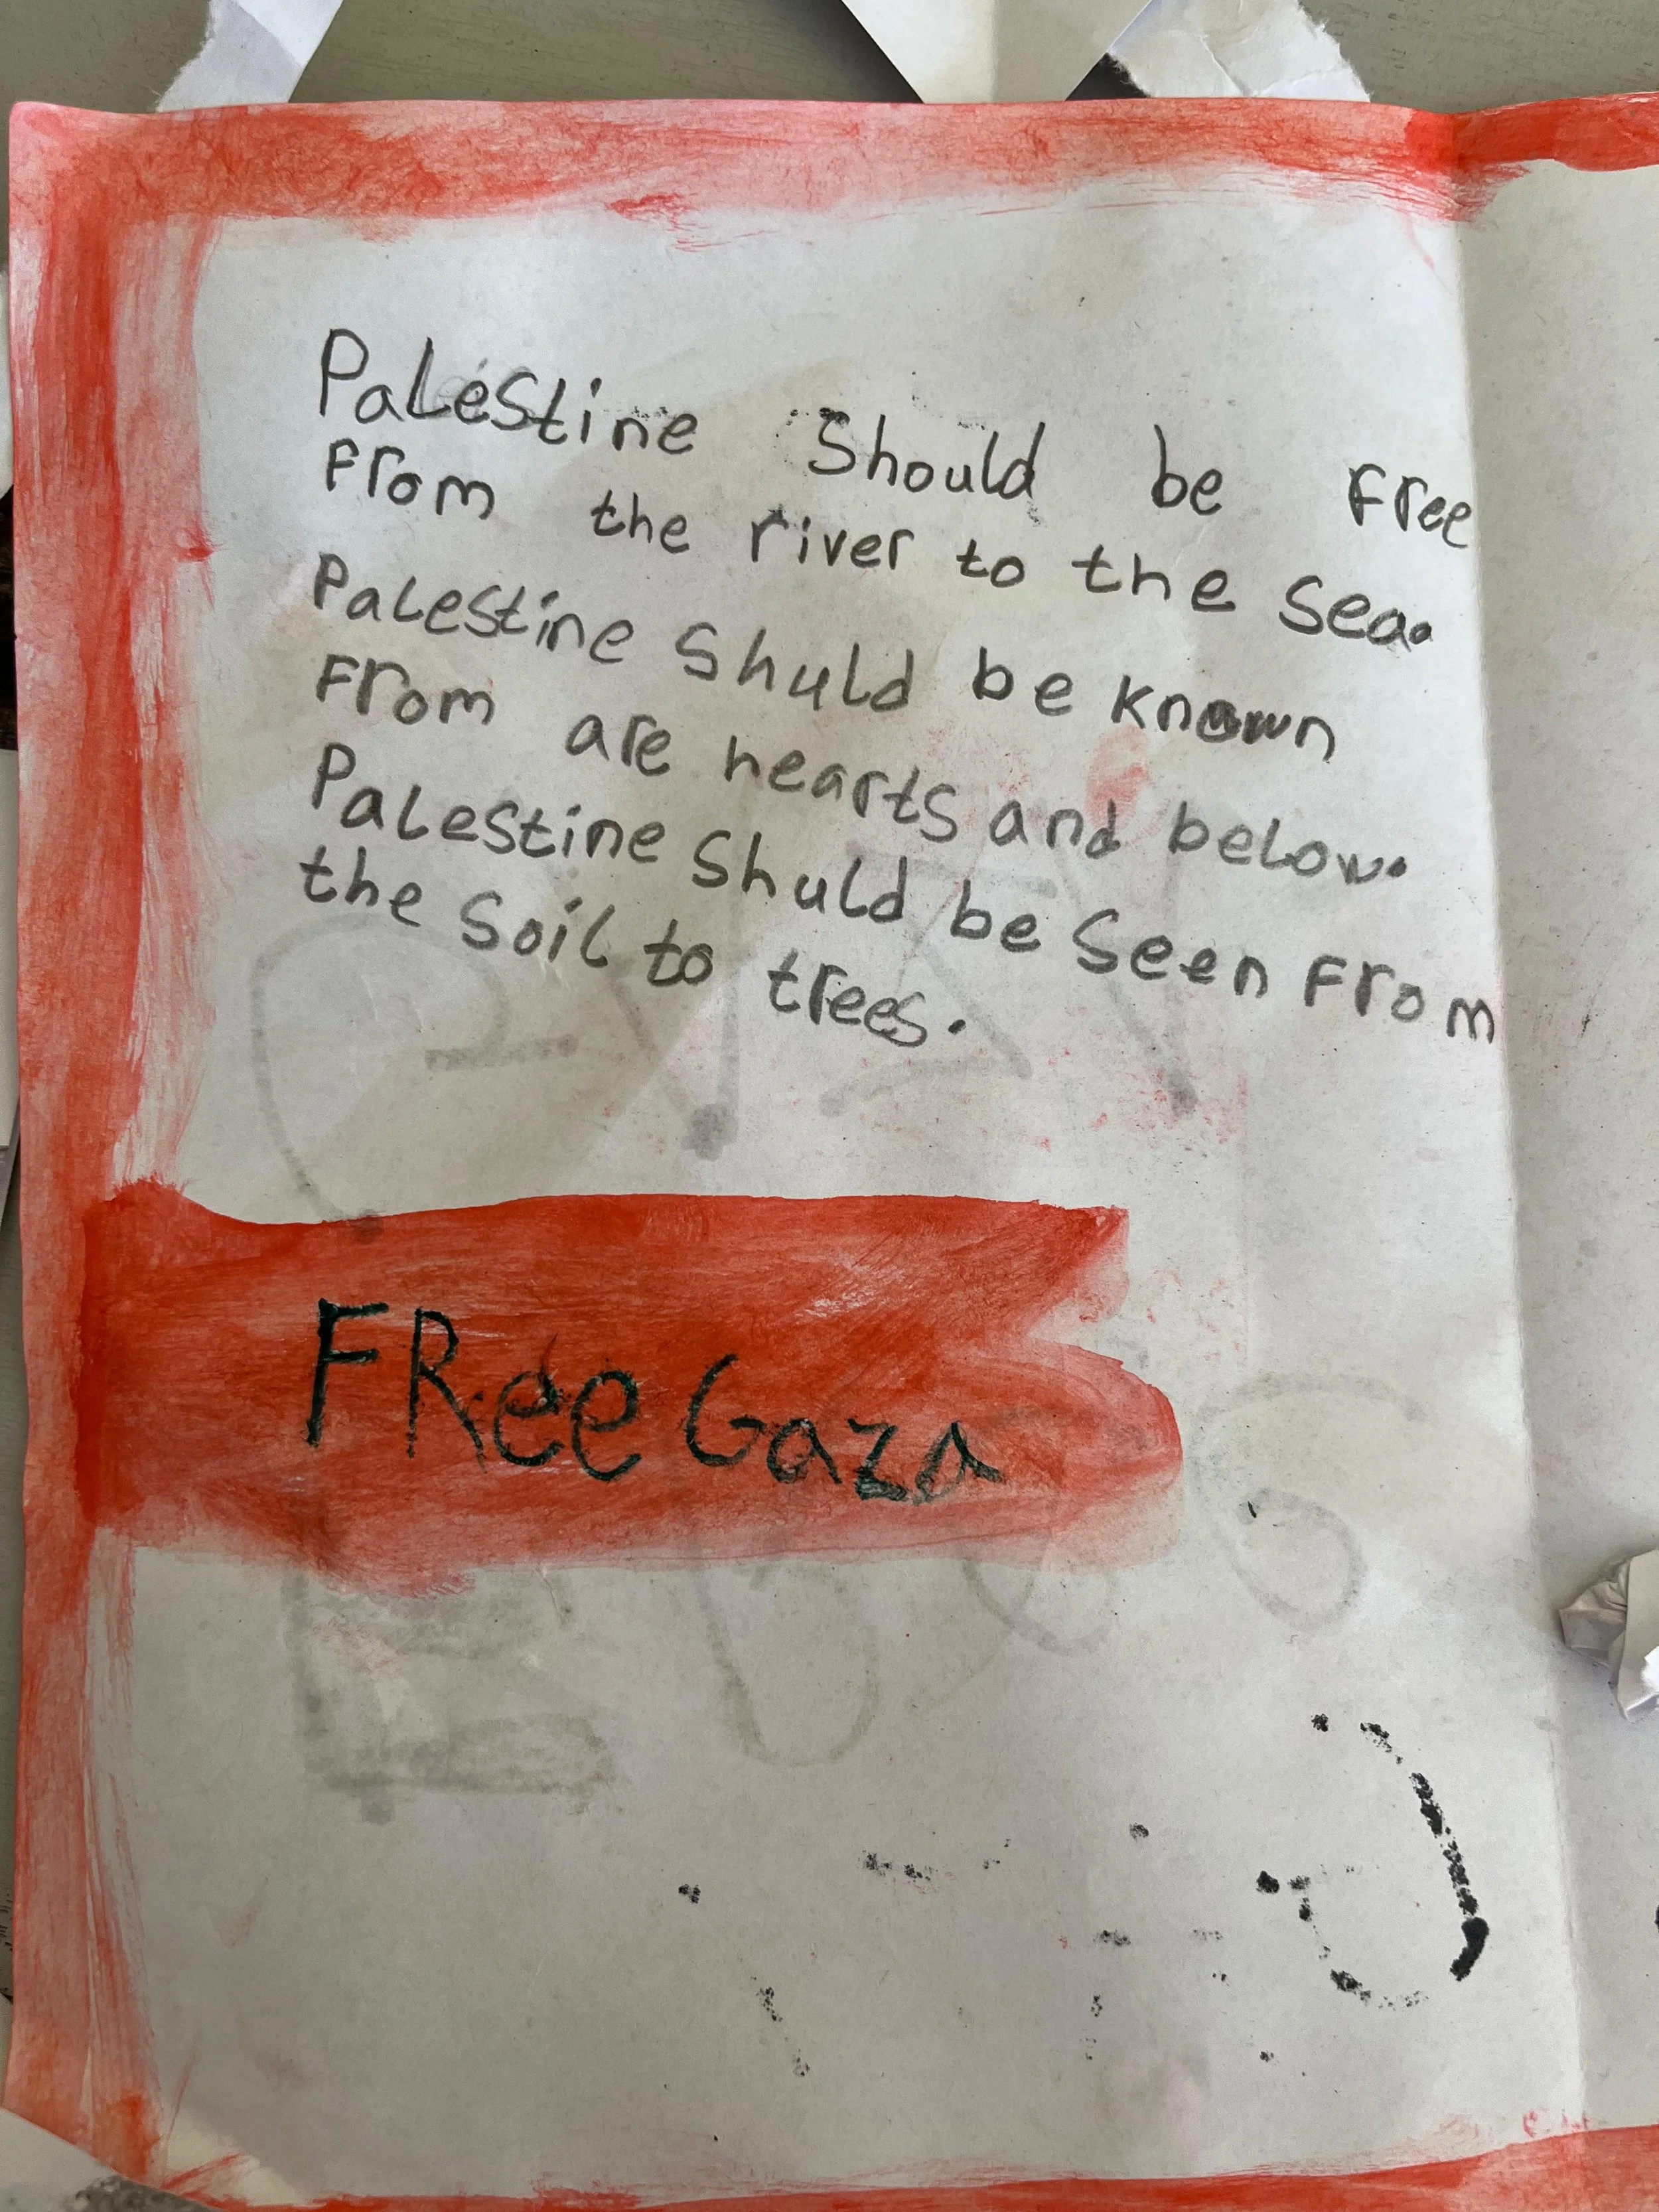 Palestine Should be Free
From the river to the Sea.
Palestine Shuld be known
From are hearts and below.
Palestine Shuld be Seen From
the Soil to trees.
FRee Gaza